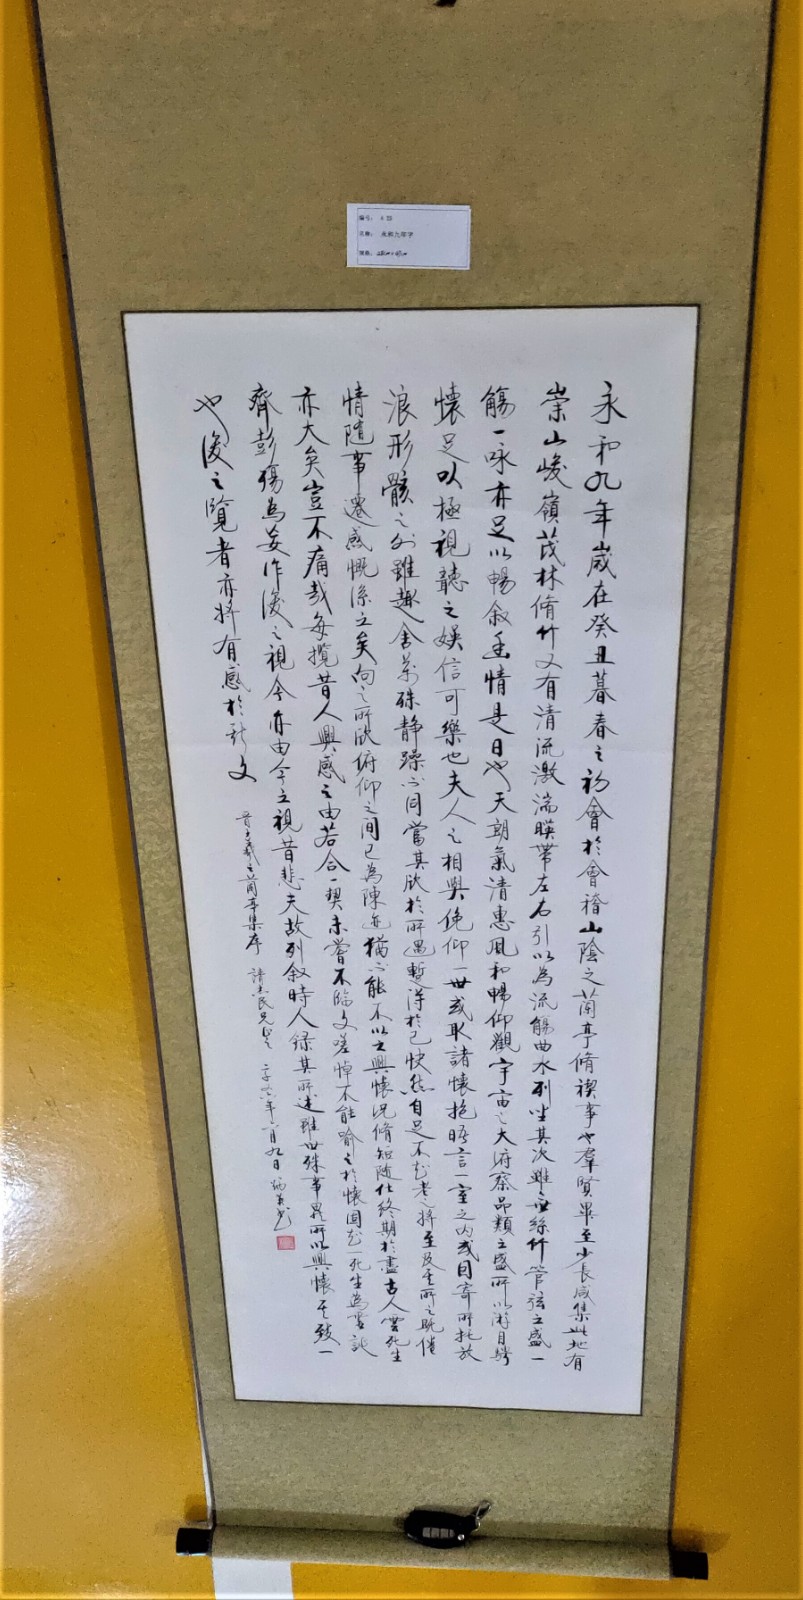 编号：
名称： 永和九年字
规格：
永和九年歲在癸丑暮春之初會於會稽山陰之蘭亭脩禊事也羣賢畢至少長咸集此地有
崇山峻嶺茂林脩竹又有清流激湍暎帶左右引以為流觴曲水列坐其次雖無絲竹管弦之盛一
觴一咏亦足以暢叙幽情是日也天朗氣清惠風和暢仰觀宇宙之大俯察品類之盛所以游目騁
懷足以極視聽之娱信可樂也夫人之相與俛仰一世或取諸懷抱晤言一室之内或因寄所托放
浪形骸之外雖趣舍萬殊静躁不同當其欣於所遇暫得於己快然自足不知老之將至及其所之既倦
情随事遷感慨係之矣向之所欣俯仰之間已為陳迹猶不能不以之興懷况脩短随化終期於盡古人雲死生
亦大矣豈不痛哉每攬昔人興感之由若合一契未嘗不臨文嗟悼不能喻之於懷固知一死生為虛誕
齊彭殤為妄作後之視今亦由今之視昔悲夫故列叙時人録其所述雖世殊事異所以興懷其致一
也後之覽者亦將有感於斯文
晋王羲之蘭亭集序 年八月九日